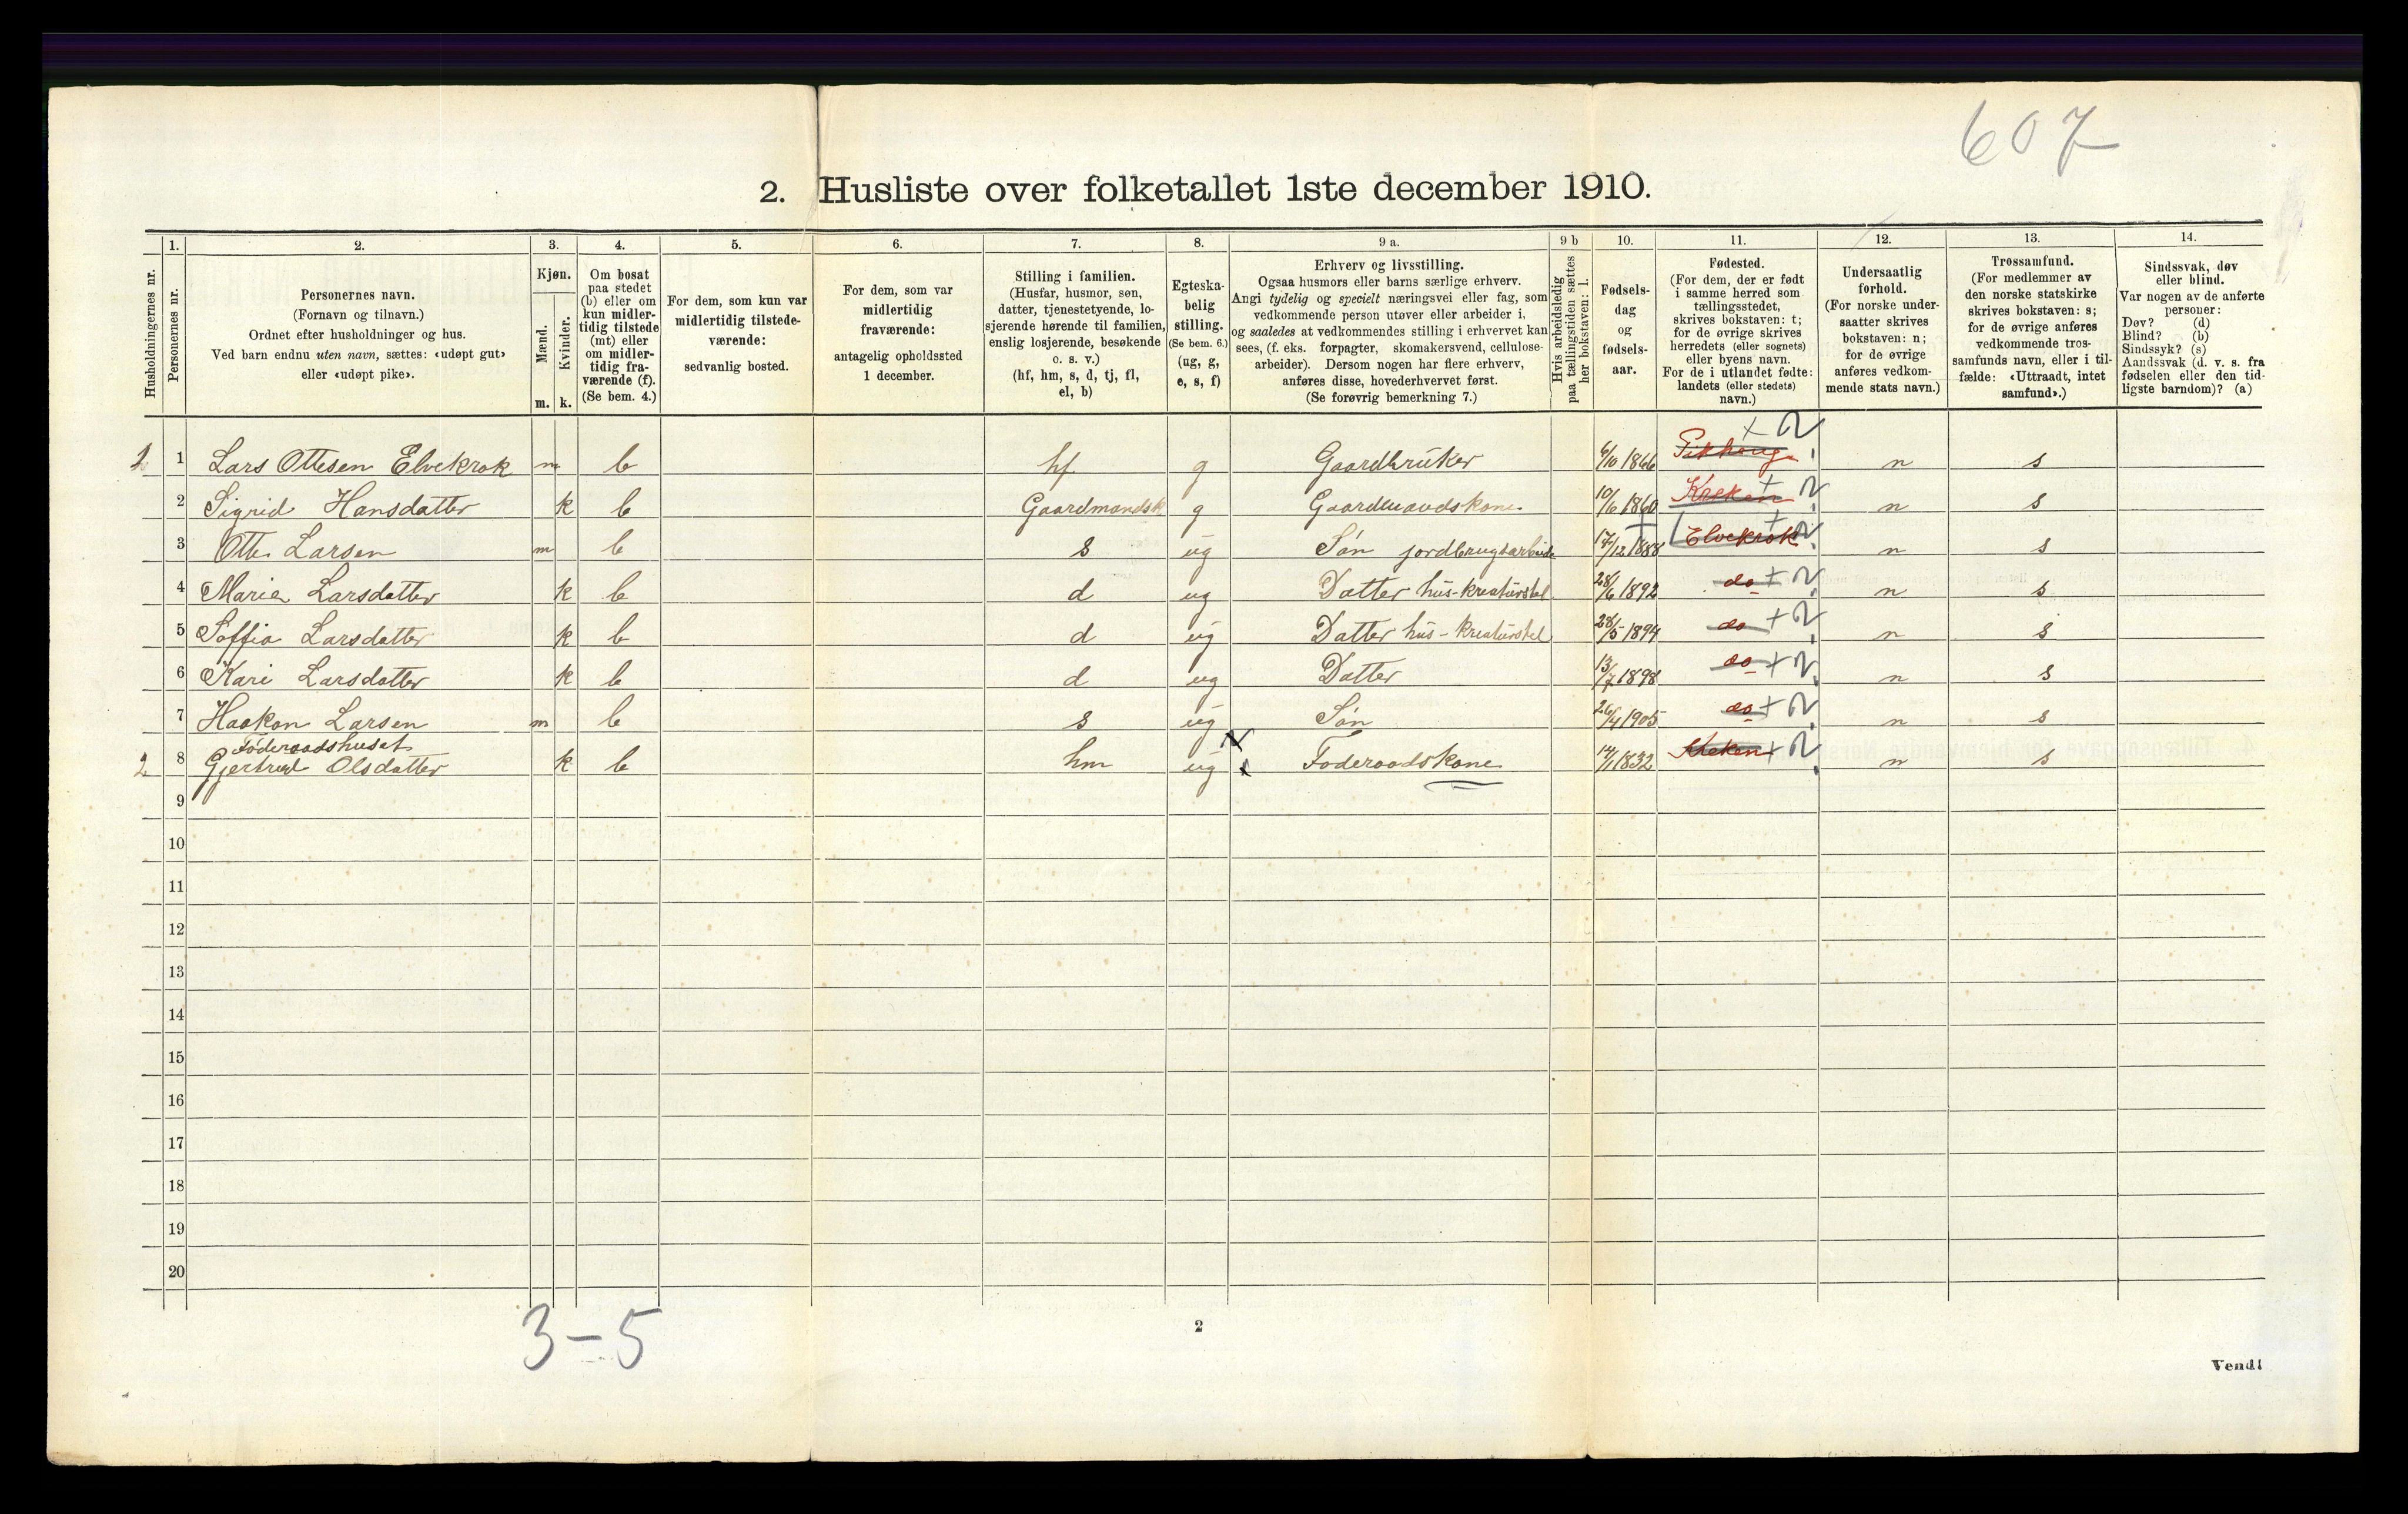 607
2. Husliste over folketallet 1ste december 1910.
Husholdningernes nr.
1.
Personernes nr.
2.
Personernes navn.
(Fornavn og tilnavn.)
Ordnet efter husholdninger og hus.
Ved barn endnu uten navn, sættes: «udøpt gut»
eller «udøpt pike».
3.
Kjøn.
Mænd.
Kvinder.
m. k.
4.
Om bosat
paa stedet
(b) eller om
kun midler-
tidig tilstede
(mt) eller
om midler-
tidig fra-
værende (f).
(Se bem. 4.)
5.
For dem, som kun var
midlertidig tilstede-
værende:
sedvanlig bosted.
6.
For dem, som var
midlertidig
fraværende:
antagelig opholdssted
1 december.
7.
Stilling i familien.
(Husfar, husmor, søn,
datter, tjenestetyende, lo-
sjerende hørende til familien,
enslig losjerende, besøkende
o. s. v.)
(hf, hm, s, d, tj, fl,
el, b)
8.
Egteska-
belig
stilling.
(Se bem. 6.)
(ug, g,
e, s, f)
9 a.
Erhverv og livsstilling.
Ogsaa husmors eller barns særlige erhverv.
Angi tydelig og specielt næringsvei eller fag, som
vedkommende person utøver eller arbeider i,
og saaledes at vedkommendes stilling i erhvervet kan
sees, (f. eks. forpagter, skomakersvend, cellulose-
arbeider). Dersom nogen har flere erhverv,
anføres disse, hovederhvervet først.
(Se forøvrig bemerkning 7.)
9 b
Hvis arbeidsledig
paa tællingstiden sættes
her bokstaven: l.
10.
Fødsels-
dag
og
fødsels-
aar.
11.
Fødested.
(For dem, der er født
i samme herred som
tællingsstedet,
skrives bokstaven: t;
for de øvrige skrives
herredets (eller sognets)
eller byens navn.
For de i utlandet fødte:
landets (eller stedets)
navn.)
12.
Undersaatlig
forhold.
(For norske under-
saatter skrives
bokstaven: n;
for de øvrige
anføres vedkom-
mende stats navn.)
13.
Trossamfund.
(For medlemmer av
den norske statskirke
skrives bokstaven: s;
for de øvrige anføres
vedkommende tros-
samfunds navn, eller i til-
fælde: «Uttraadt, intet
samfund».)
14.
Sindssvak, døv
eller blind.
Var nogen av de anførte
personer:
Døv? (d)
Blind? (b)
Sindssyk? (s)
Aandssvak (d. v. s. fra
fødselen eller den tid-
ligste barndom)? (a)
1 1 Lars Ottesen Elvekrok m b hf g Gaardbruker 6/10 1866 n s
2 Sigrid Hansdatter k b Gaardmandsk g Gaardmandskone 10/6 1860 n s
3 Otto Larsen m b s ug Søn jordbrugsarbeide 17/12 1888 Elvekrok n s
4 Marie Larsdatter k b d ug Datter hus-kreaturstel 28/6 1892 do n s
5 Soffia Larsdatter k b d ug Datter hus-kreaturstel 28/5 1894 do n s
6 Kari Larsdatter k b d ug Datter 13/7 1898 do n s
7 Haakon Larsen m b s ug Søn 26/4 1905 do n s
Föderaadshuset
2 8 Gjertrud Olsdatter k b hm ug Foderaadskone 14/1 1832 n s
9
10
11
12
13
14
15
16
17
18
19
20
3-5
2
Vend!